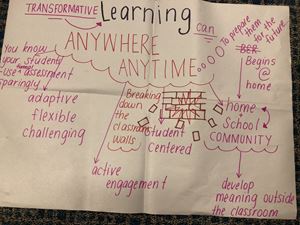 TRANSFORMATIVE Learning
can
ANYWHERE
ANYTIME
To prepare
them for the
future.
Begins
@
home
You know
your students
use formal assessment
sparingly
adaptive
flexible
challenging
Breaking
down
the
classroom
walls
student
centered
home
+
School
COMMUNITY
active
engagement
develop
meaning outside
the classroom